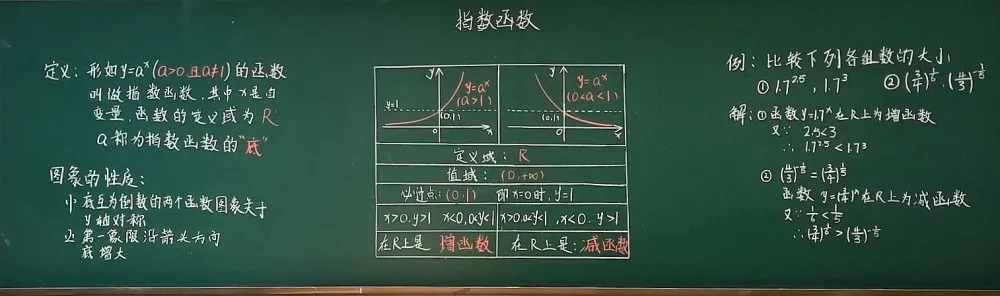 指数函数
定义：形如y=aˣ(a>0且a≠1)的函数
叫做指数函数，其中x是自
变量，函数的定义域为R
a称为指数函数的"底"
图象的性质：
(1) 底互为倒数的两个函数图象关于
y轴对称
(2) 第一象限沿箭头方向
底增大
y
y=aˣ
(a>1)
y=1
(0,1)
0
x
y
y=aˣ
(0<a<1)
(0,1)
0
x
定义域：R
值域：(0,+∞)
必过点：(0,1) 即x=0时，y=1
x>0，y>1 x<0，0<y<1
x>0，0<y<1，x<0，y>1
在R上是 增函数
在R上是：减函数
例：比较下列各组数的大小
① 1.7^2.5，1.7^3 ②
解：①函数y=1.7ˣ在R上为增函数
又∵ 2.5<3
∴ 1.7^2.5<1.7^3
②
函数 在R上为减函数
又∵
∴